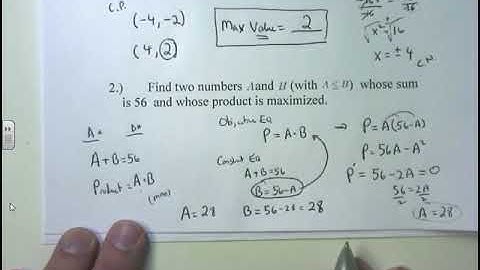 C.P.
(-4, -2)
(4, 2)
Max Value = 2
√x² = √16
x = ± 4
C.N.
2.) Find two numbers A and B (with A ≤ B) whose sum
is 56 and whose product is maximized.
A = B =
A+B=56
Product = A·B
(max)
Objective Eq
P = A·B
Constraint Eq
A+B=56
B=56-A
A = 28
B = 56-28 = 28
⇒ P = A(56-A)
P = 56A - A²
P' = 56 - 2A = 0
56/2 = 2A/2
A = 28